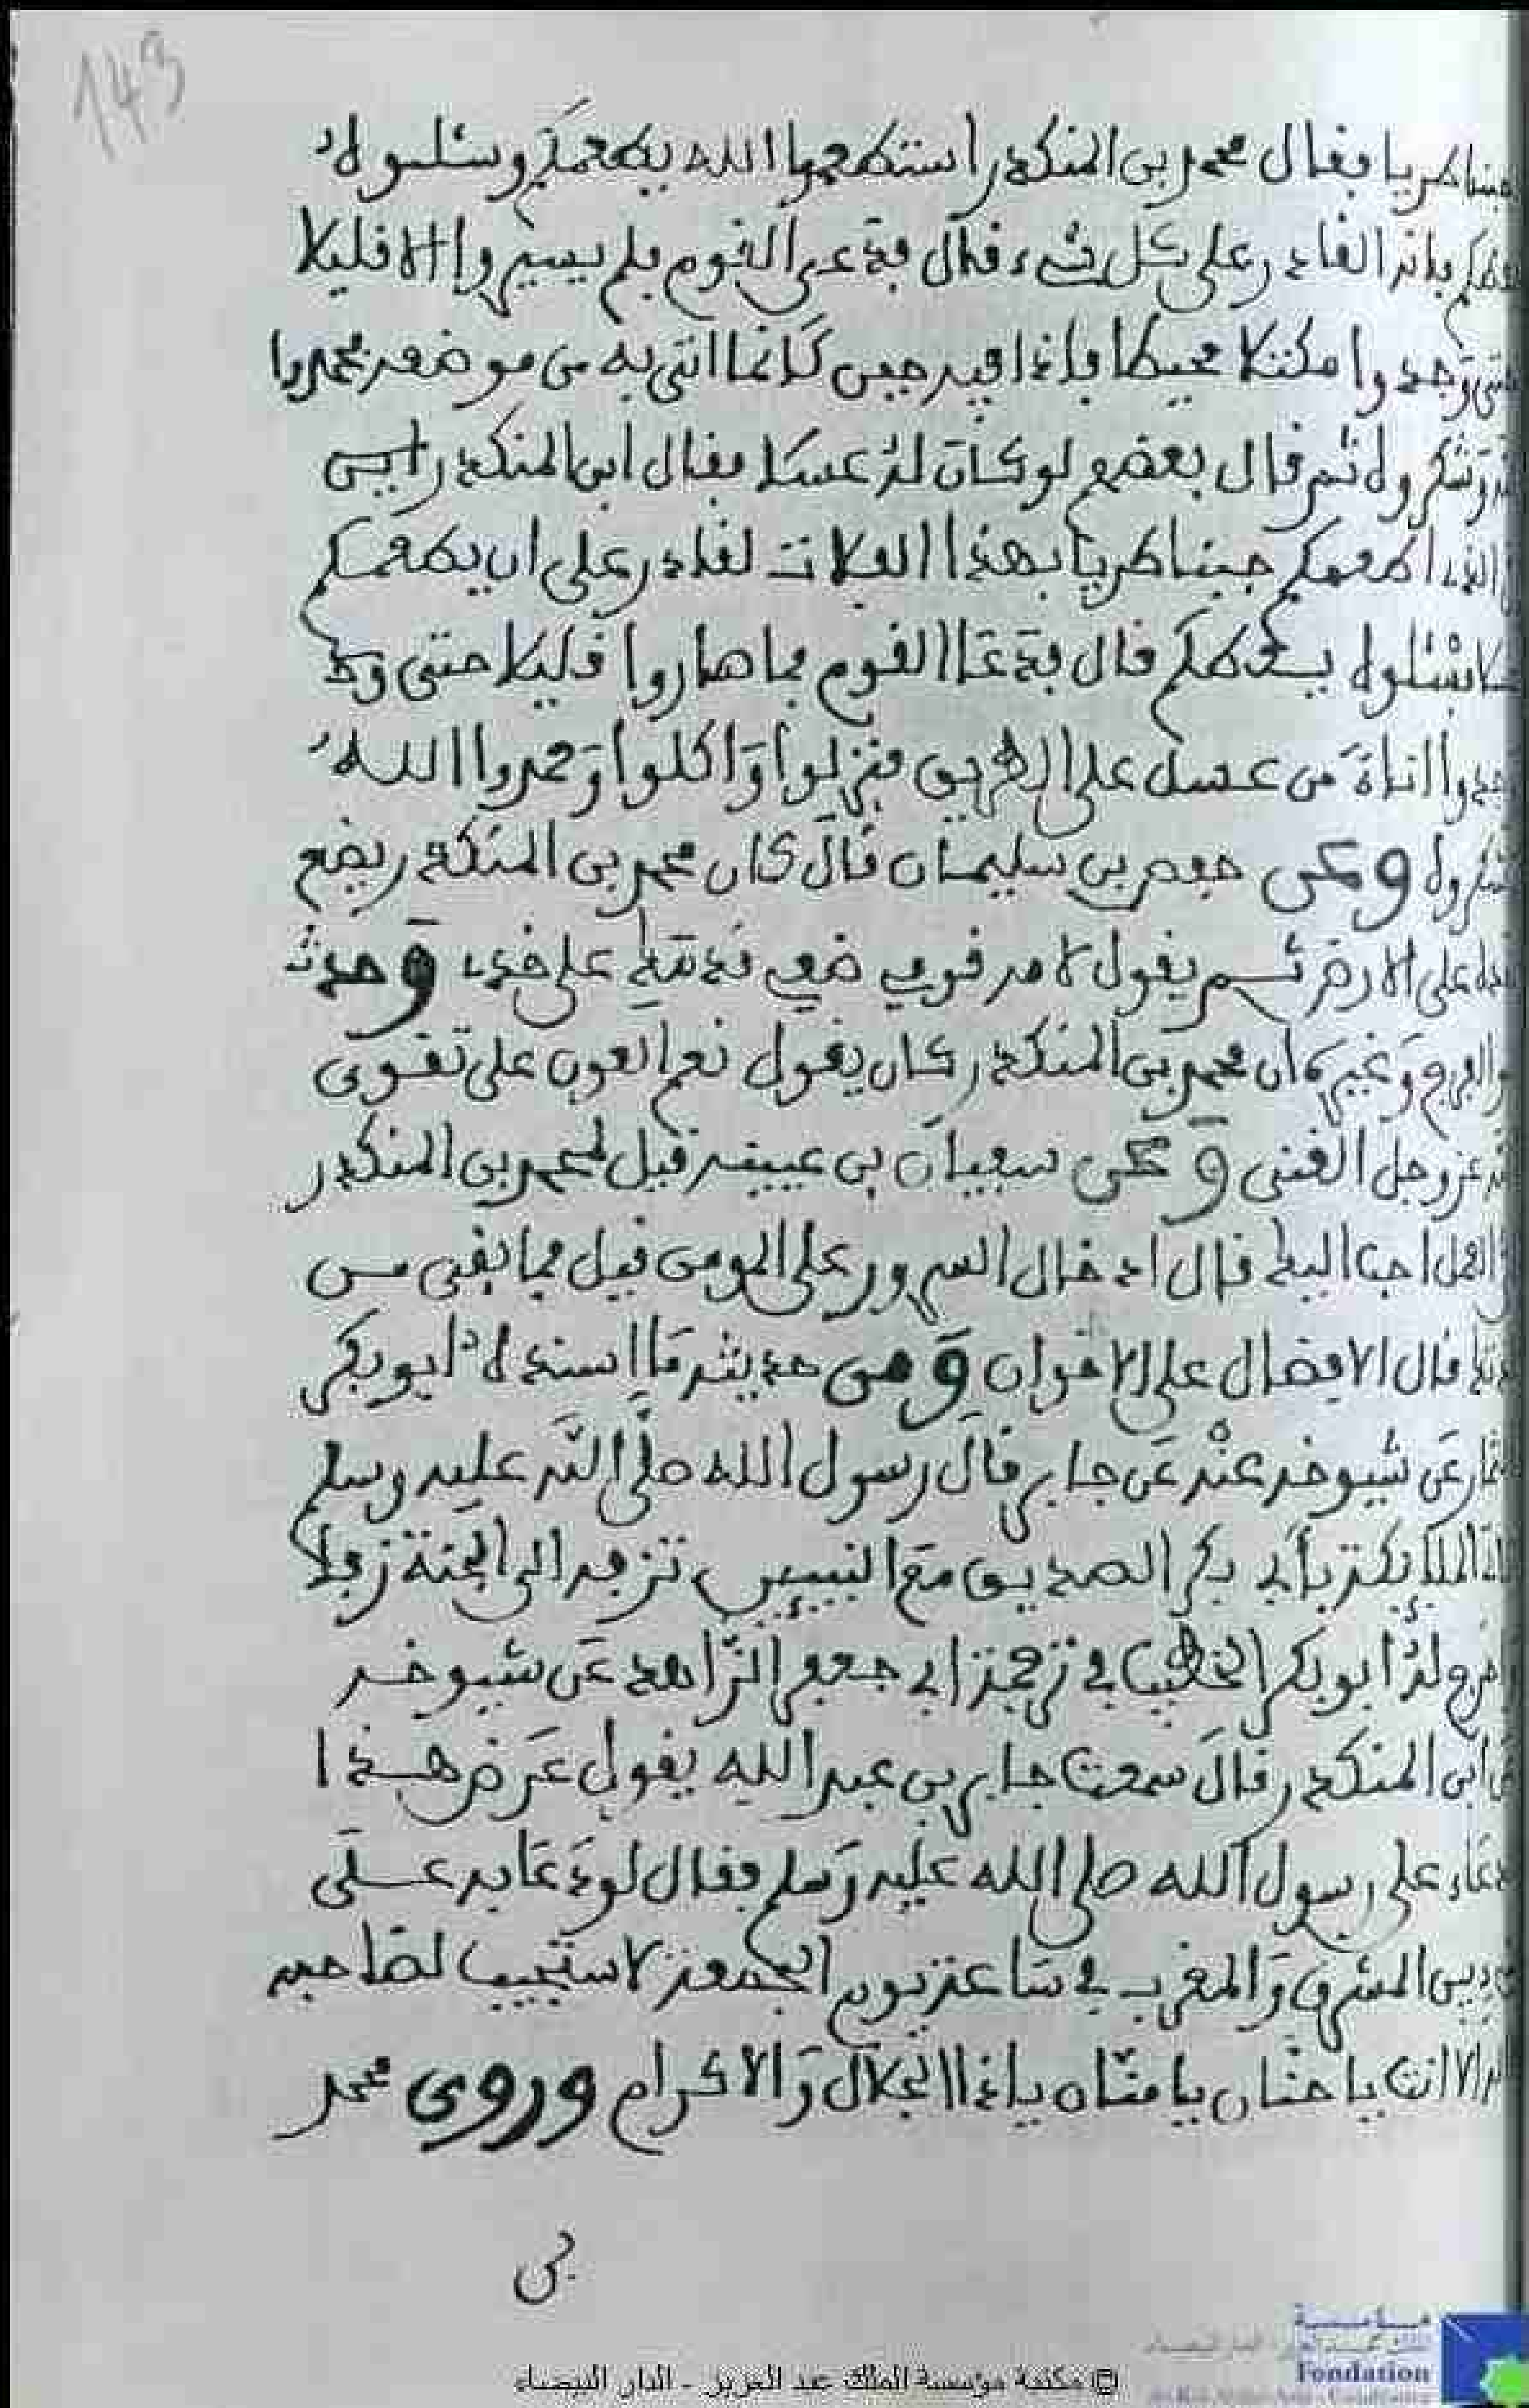 143
جبنا طريا فقال محمد بن المنكدر استطعموا الله يطعمكم وسئلوه
فانه القادر على كل شيء قال فدعى القوم فلم يسيروا الا قليلا
حتى وجدوا مكتلا مخيطا فاذا فيه جبن كانما اتى به من موضعه فحمدوا
وشكروه ثم قال بعضهم لو كان له عسلا فقال ابن المنكدر اليس
الذي اطعمكم جبنا طريا بهذا الفلات لقادر على ان يطعمكم
عسلا فسئلوه يعطكم قال فدعا القوم فما صاروا قليلا حتى و
جدوا اناة من عسل على الطريق فنزلوا واكلوا وحمدوا الله
وشكروه وعن جعفر بن سليمان قال كان محمد بن المنكدر يضع
خده على الارض ثم يقول لامه قومي ضعي قدمك على خدي وحدث
ابو الفرج وغيره ان محمد بن المنكدر كان يقول نعم العون على تقوى
الله عز وجل الغنى وعن سفيان بن عيينه قيل لمحمد بن المنكدر
اي العمل احب اليك قال ادخال السرور على المومن قيل فما بقي من
لذتك قال الافضال على الاخوان ومن حديثه ما اسنده ابو بكر
عن شيوخه عنه عن جابر قال رسول الله صلى الله عليه وسلم
الملايكة بابي بكر الصديق مع النبييين تزفه الى الجنة زفا
اخرج له ابو بكر الخطيب في ترجمة ابي جعفر الزاهد عن شيوخه
عن ابن المنكدر قال سمعت جابر بن عبد الله يقول عرض هذا
الدعاء على رسول الله صلى الله عليه وسلم فقال لو دعا به على
شيء بين المشرق والمغرب في ساعة يوم الجمعة لاستجيب لصاحبه
الا انت يا حنان يا منان ياذا الجلال والاكرام وروى محمد
بن
مؤسسة
Fondation
© مكتبة مؤسسة الملك عبد العزيز - الدار البيضاء